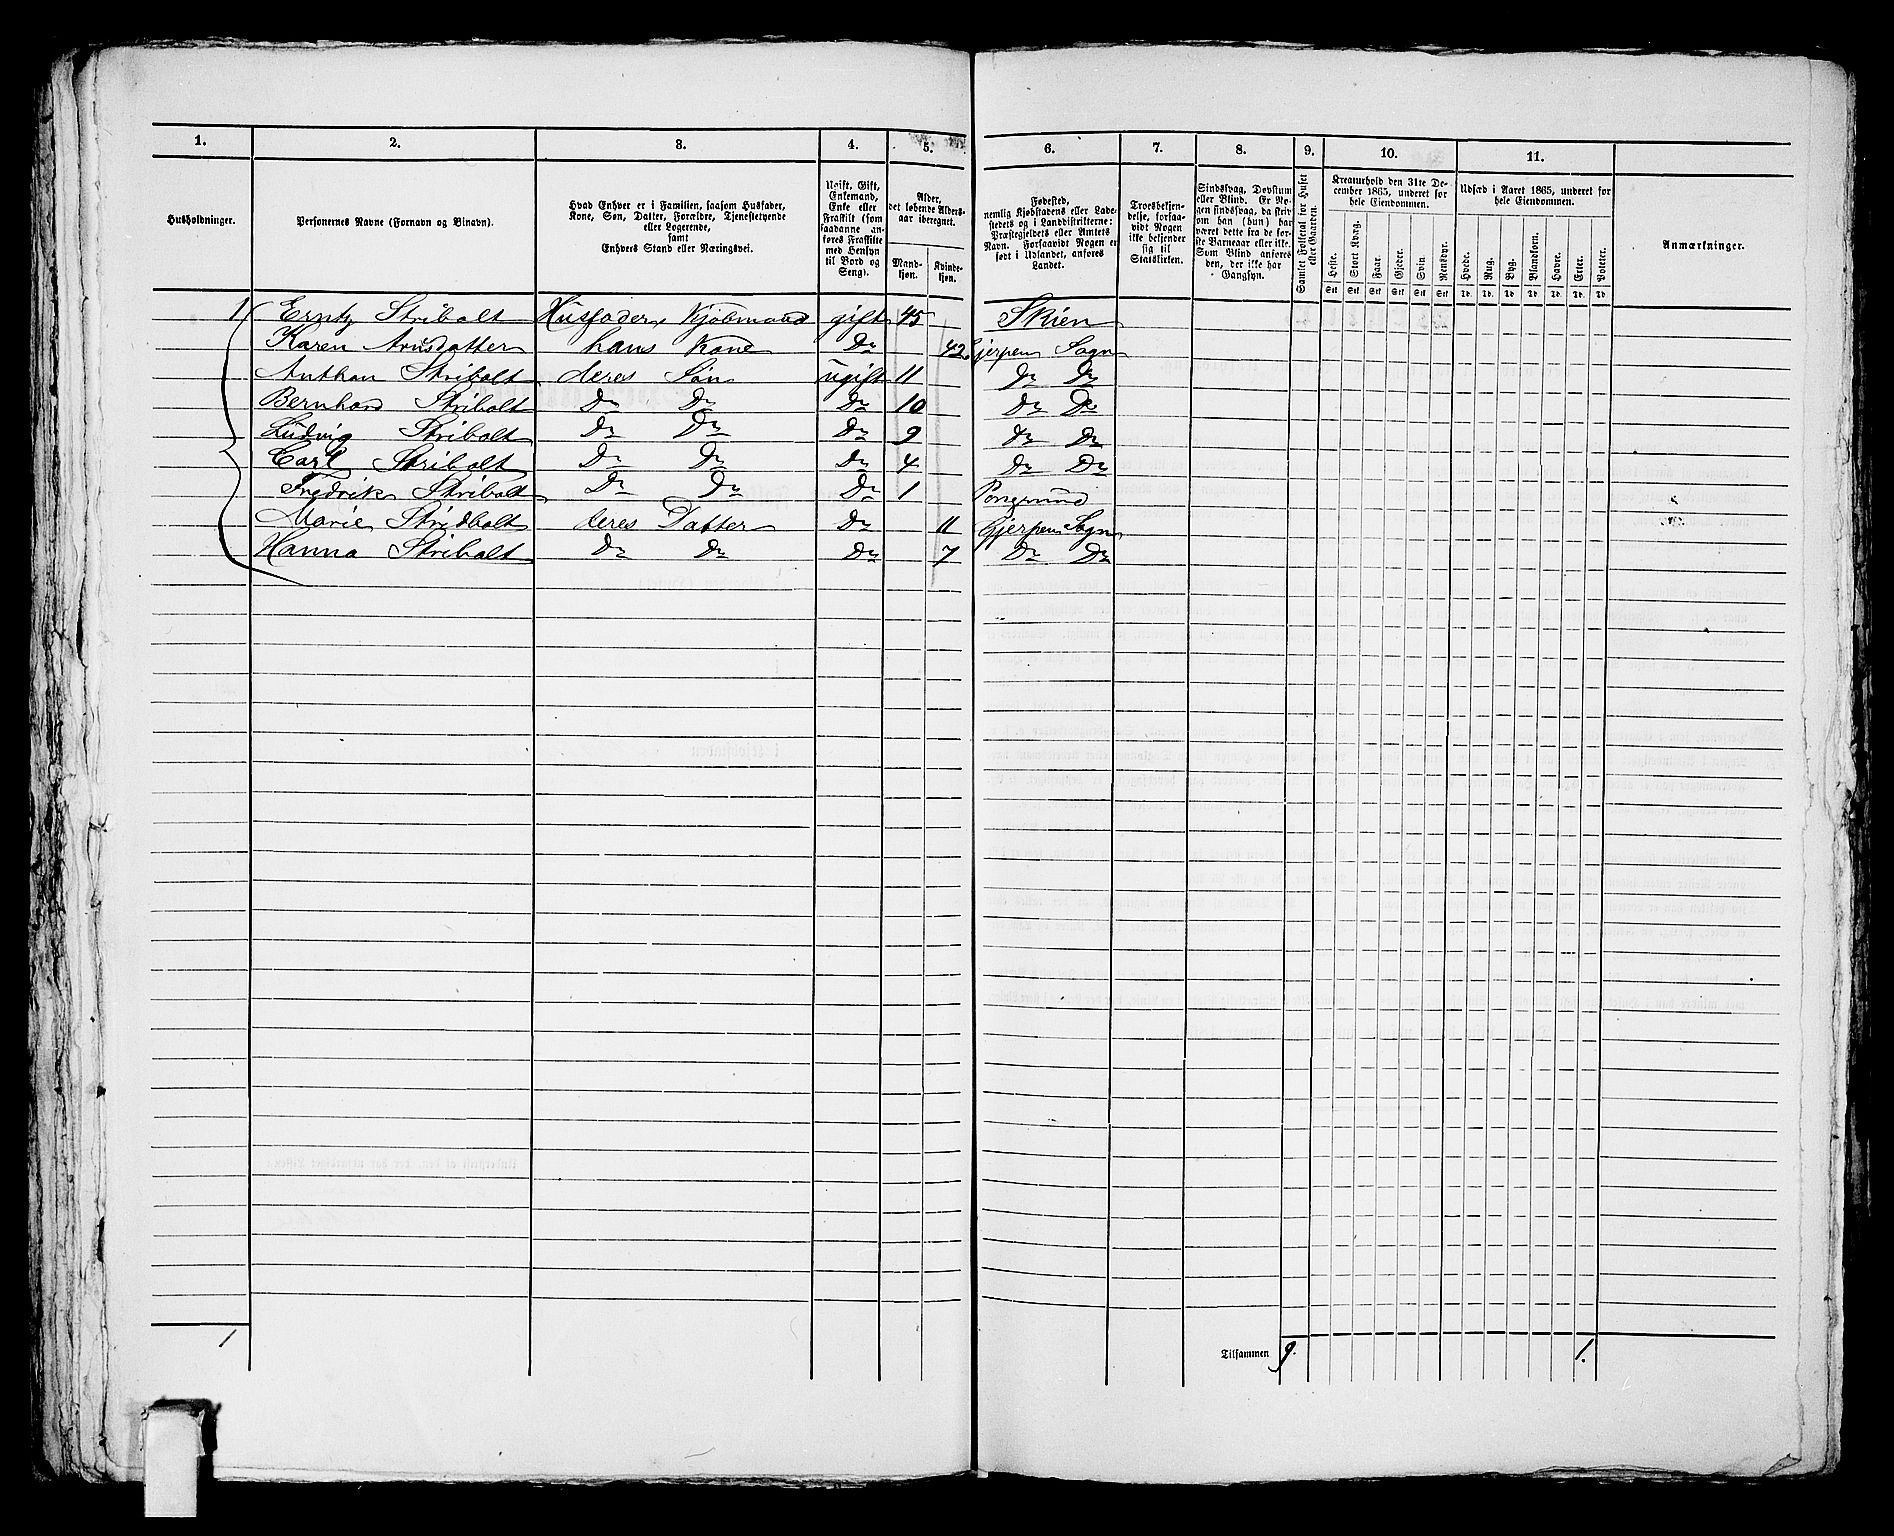 1. 2. 3. 4. 5. 6. 7. 8. 9. 10. 11.
Husholdninger.
Personernes Navne (Fornavn og Binavn).
Hvad Enhver er i Familien, saasom Husfader,
Kone, Søn, Datter, Forældre, Tjenestetyende
eller Logerende,
samt
Enhvers Stand eller Næringsvei.
Ugift, Gift,
Enkemand,
Enke eller
Fraskilt (som
saadanne an-
føres Fraskilte
med Hensyn
til Bord og
Seng).
Alder,
det løbende Alders-
aar iberegnet.
Mand-
kjøn.
Kvinde-
kjøn.
Fødested,
nemlig Kjøbstadens eller Lade-
stedets og i Landdistrikterne:
Præstegjeldets eller Amtets
Navn. Forsaavidt Nogen er
født i Udlandet, anføres
Landet.
Troesbekjen-
delse, forsaa-
vidt Nogen
ikke bekjender
sig til
Statskirken.
Sindssvag, Døvstum
eller Blind. Er No-
gen sindssvag, da skriv
om han (hun) har
været dette fra de før-
ste Barneaar eller ikke.
Som Blind anføres
den, der ikke har
Gangsyn.
Samlet Folketal for Huset
eller Gaarden.
Kreaturhold den 31te De-
cember 1865, underet for
hele Eiendommen.
Heste. Stort Kvæg. Faar. Gjeder. Svin. Rensdyr.
Stk Stk Stk Stk Stk Stk
Udsæd i Aaret 1865, underet for
hele Eiendommen.
Hvede. Rug. Byg. Blandkorn. Havre. Erter. Poteter.
Td. Td. Td. Td. Td. Td. Td.
Anmærkninger.
1 Erntz Stribolt Husfader, Kjøbmand gift 45 Skien
Karen Arnsdatter hans Kone Do 42 Gjerpen Sogn
Anthon Stribolt deres Søn ugift 11 Do Do
Bernhard Stribolt Do Do Do 10 Do Do
Ludvig Stribolt Do Do Do 9 Do Do
Carl Stribolt Do Do Do 4 Do Do
Fredrik Stribolt Do Do Do 1 Porsgrund
Marie Stridbolt deres Datter Do 11 Gjerpen Sogn
Hanna Stribolt Do Do Do 7 Do Do
1 Tilsammen 9. 1.